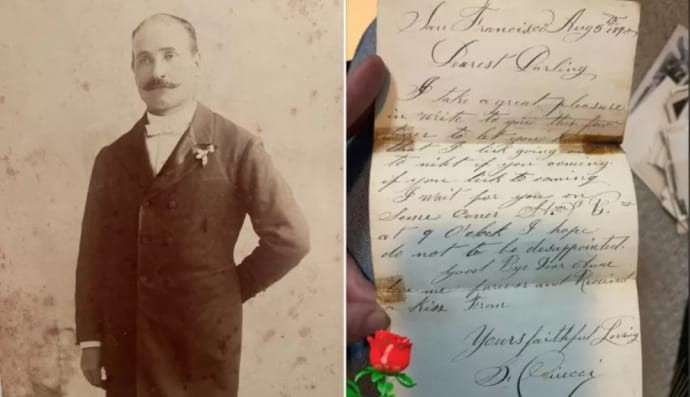 San Francisco Aug 5th 1890
Dearest Darling
I take a great pleasure
in write to you this few
to let you
that I lick going out
to night if you coming.
if you lick to coming
I wait for you on
Same coner
at 9 O'clock I hope
do not to be disappointed.
Good Bye Dear
me forever and Received
a Kiss From
Yours faithful Loving